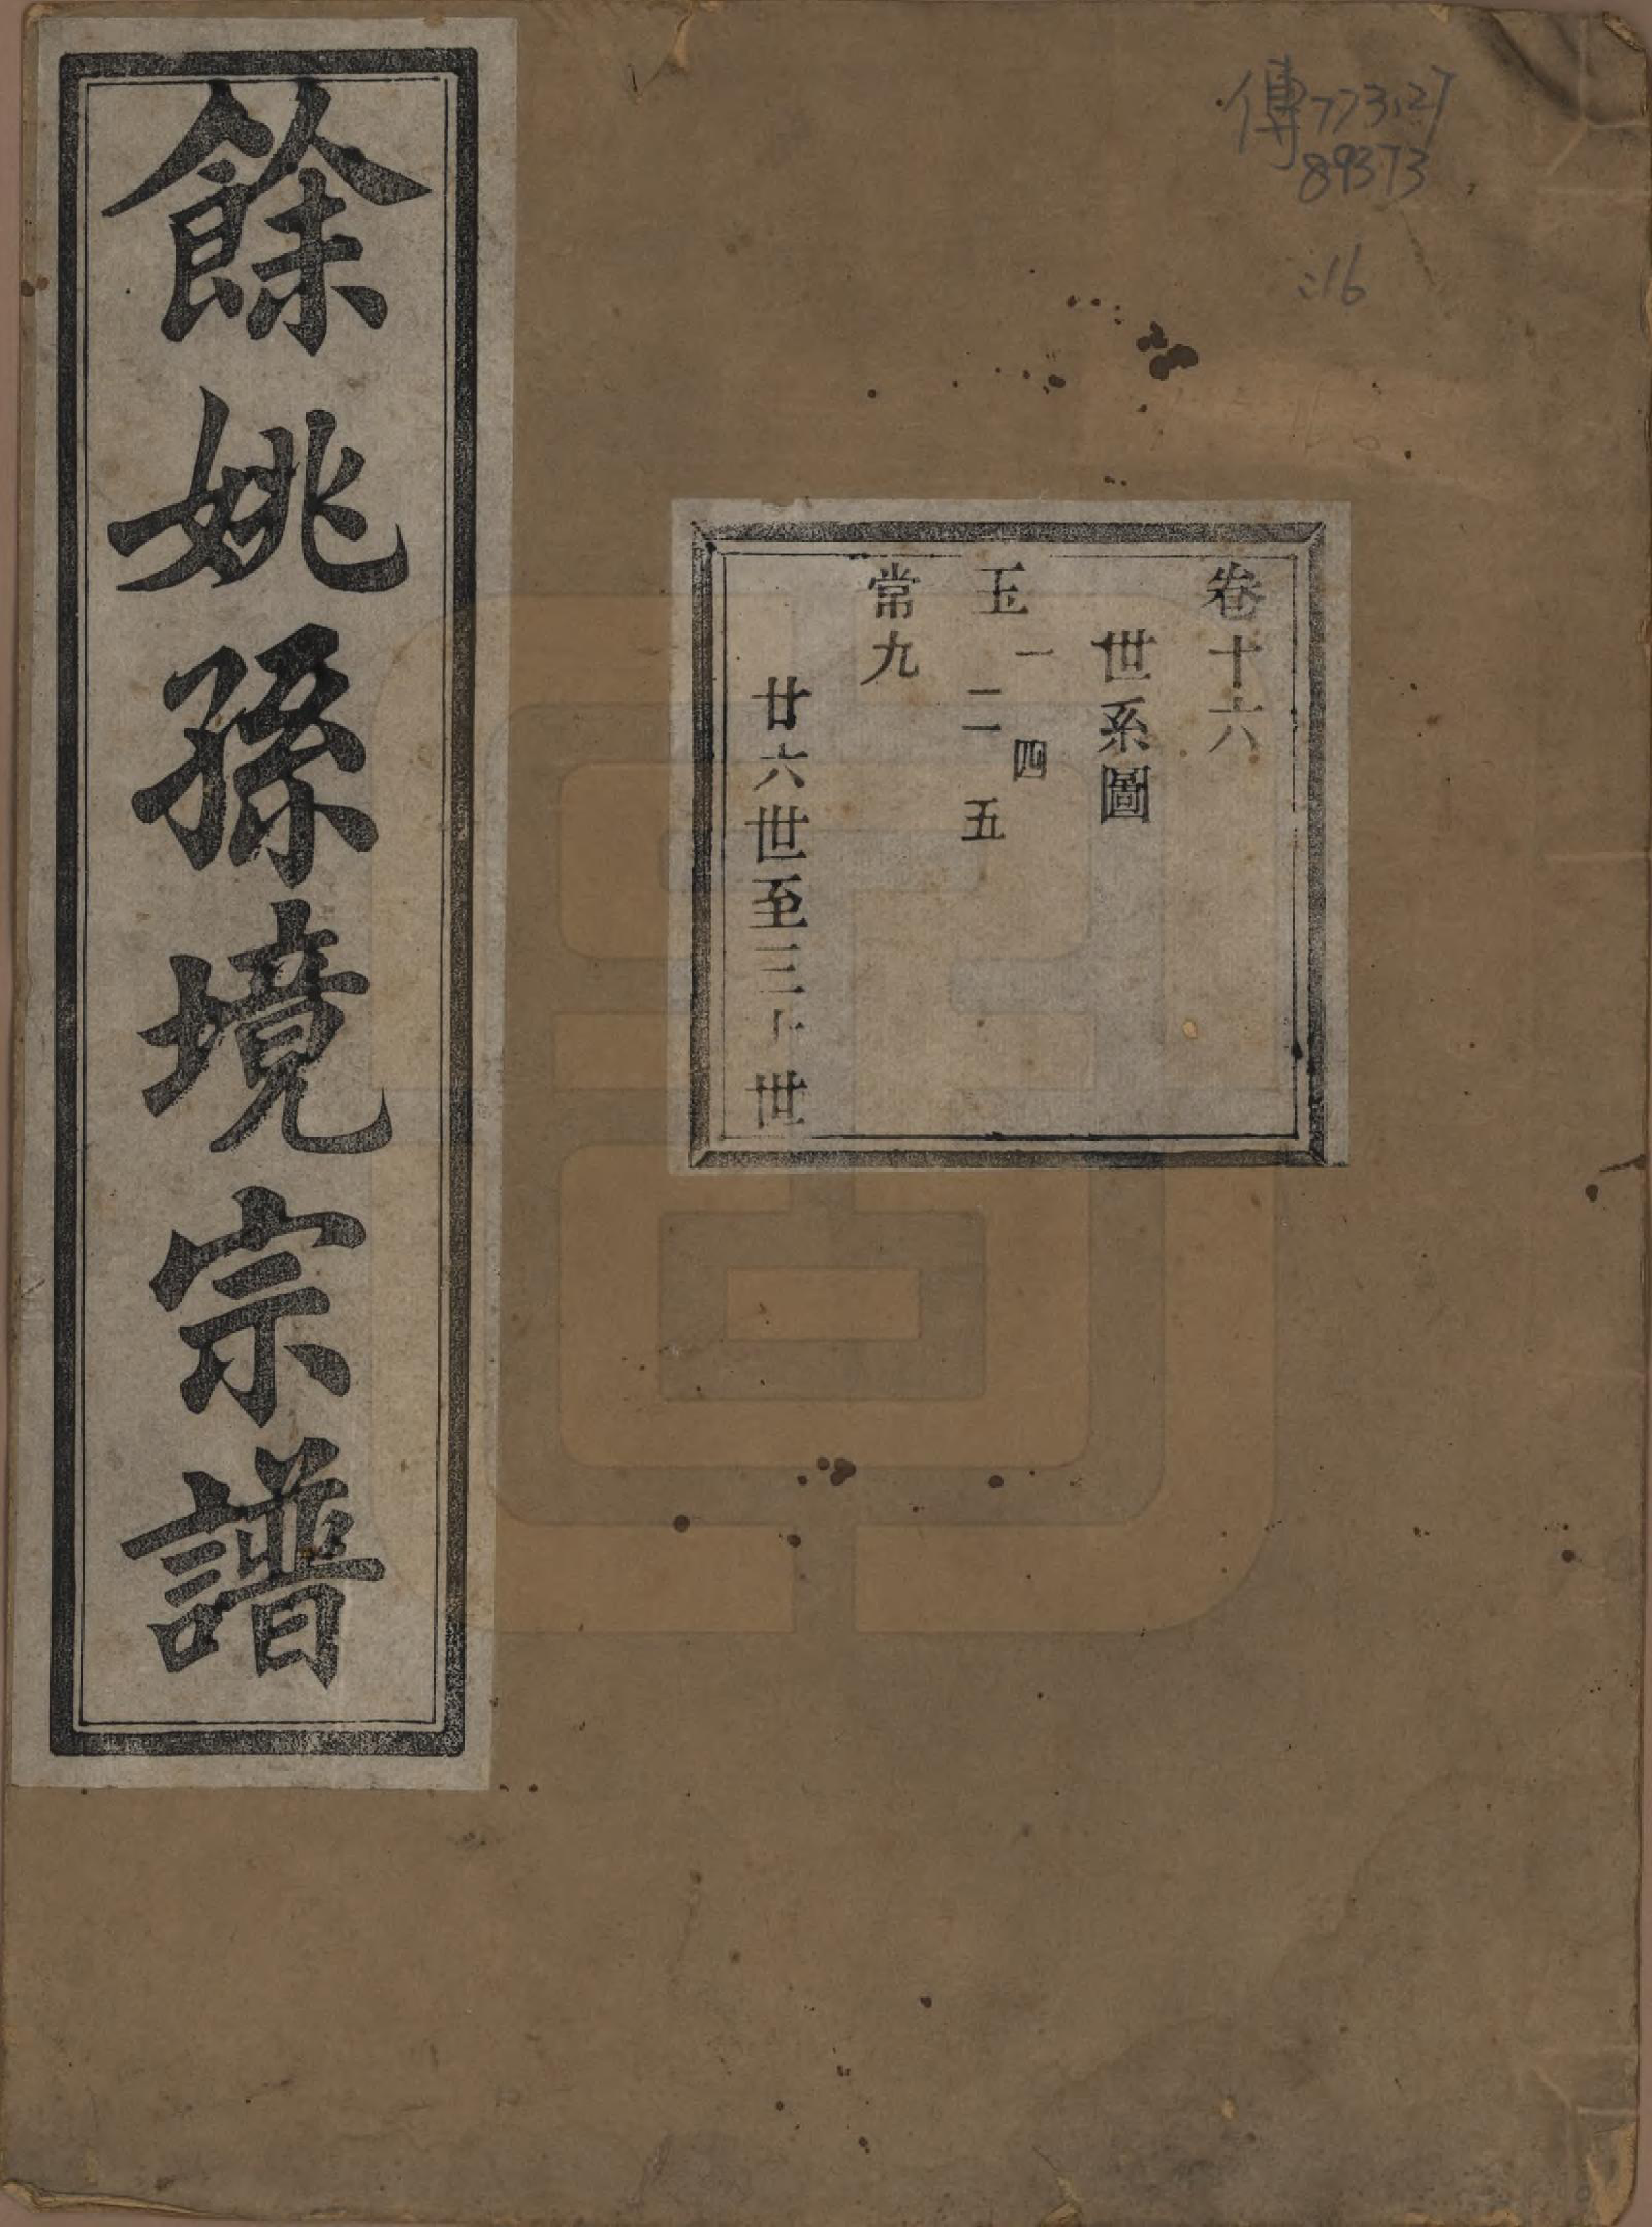 餘姚孫境宗譜
傳773.27
89373
:16
卷十六
世系圖
玉一二四五
常九
廿六世至三十世